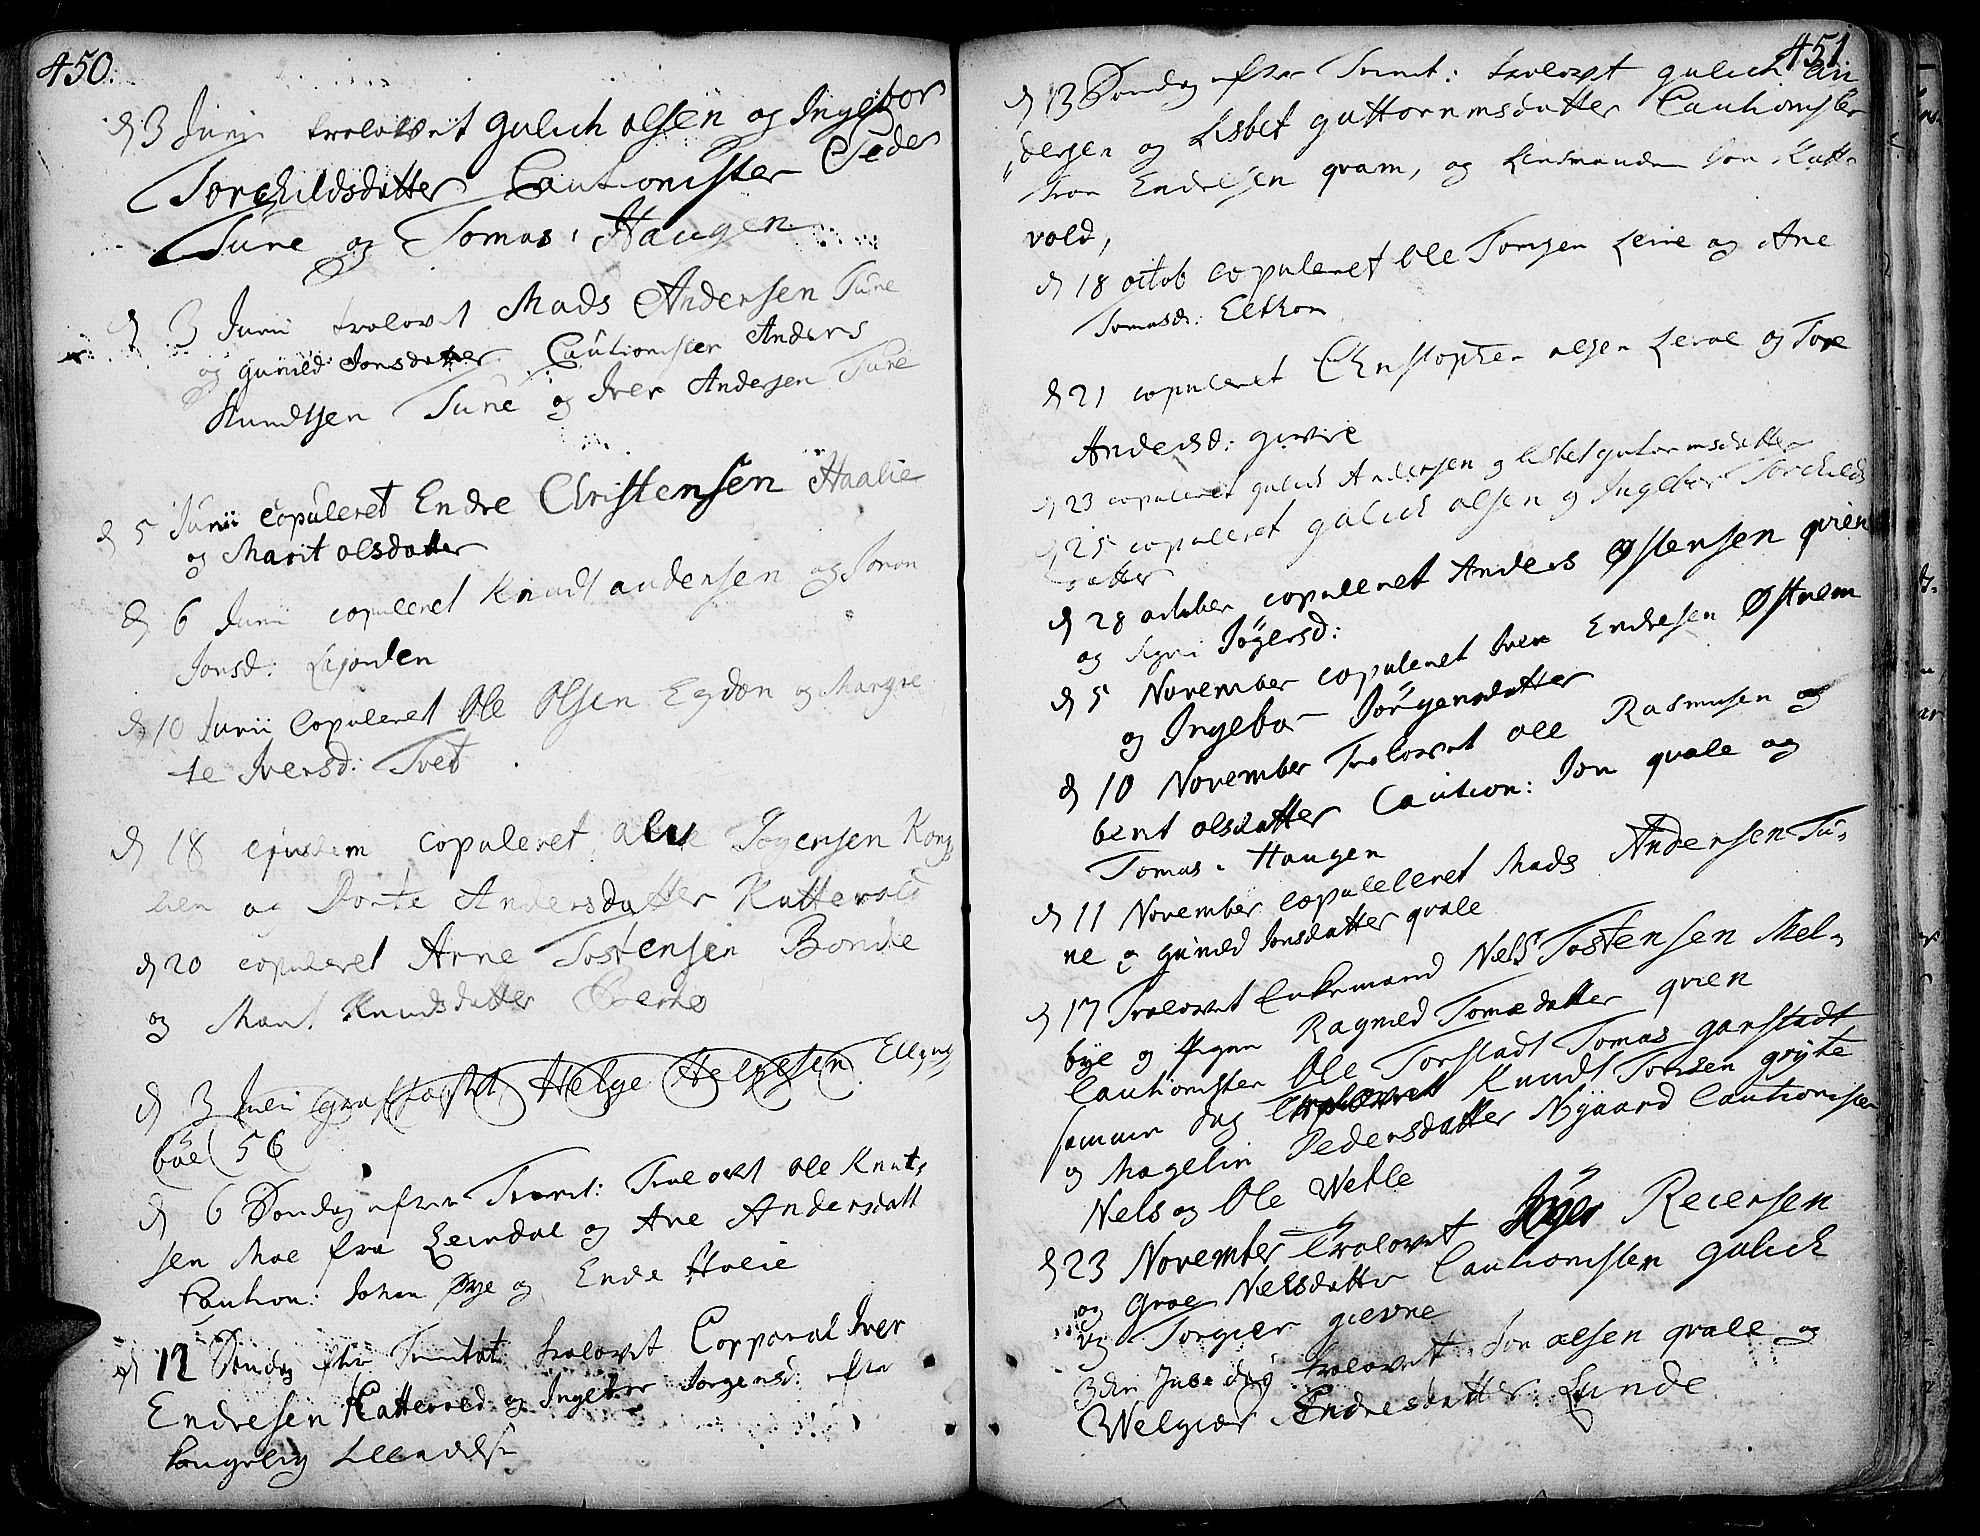 450.
d 3 Junii trolovet gulich olsen og Ingebor
Torchildsdatter Cautionister Peder
Tune og Tomas Haugen
d 3 Junii trolovet Mads Andersen Tune
og guneld Jonsdatter Cautionister Anders
Knudtsen Tune og Iver Andersen Tune
d 5 Junii copuleret Endre Christensen Haalie
og Marit olsdatter
d 6 Junii copuleret Knudt andersen og
Jonsd:
d 10 Junii Copuleret Ole Olsen Egdon og Margre
te Iversd: Tved
d 18 ejusdem copuleret Jøgensen Kong
og Dorte Andersdatter Kattevold
d 20 copuleret Arne Tostensen Bonde
og Marit Knudsdatter
d 3 Julii graffæstet Helge Helgesen
büe 56
d 6 Søndag efter Trinit: Trolovet Ole Knut,
sen Moe fra Leirdal og Ane Andersdatt
Caution: Johan Øye og Endre Holie
d 12 Søndag efter Trinitat: trolovet Corporal Iver
Endresen Kattevold og Ingebor Jørgensd: efter
451
d 13 Søndag efter Trinit: trolovet gulich An
dersen og Lisbet guttormsdatter Cautionister
Iver Endresen qvam, og Lensmanden Jon Katte
vold,
d 18 octob copuleret Ole Tomsen Leine og Ane
Tomasd: Elthon
d 21 copuleret Christopher olsen Lerol og Tore
Andersd: givre
d 23 copuleret gulich Andersen og lisbet gutormsdatter
d 25 copuleret gulich olsen og Ingebor Torchilds
datter
d 28 october copuleret Anders Østensen qvien
og Signi Jøgersd:
d 5 November copuleret Iver Endresen Østrem
og Ingebor Jørgensdatter
d 10 November Trolovet Ole Rasmusen og
berit olsdatter Caution: Jon qvale og
Tomas Haugen
d 11 November copuleleret Mads Andersen Tu,
ne og guneld Jonsdatter qvale
d 17 Trolovet Enkemand Nels Tostensen Mel,
bye og Pigen Ragneld Tomædatter qvien
Cautionister Ole Torstadt Tomas garstadt
samme dag Trolovet Knudt Tomsen gryte
og Magelin Pedersdatter Nygaard Cautionister
Nels og Ole Wehle
d 23 November Trolovet Jøger Reiersen
og Groe Nielsdatter Cautionister gulich
og Torgier gierne
3den Jule dag trolovet Jon olsen qvale og
Welgier Endresdatter: Lunde